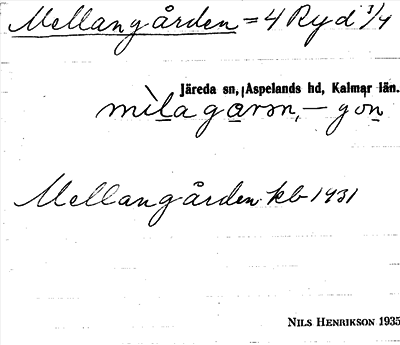 Mellangården = 4 Ryd 3/4
Järeda sn, Aspelands hd, Kalmar län.
mìlagarən, – go̱n
Mellangården kb 1931
NILS HENRIKSON 1935